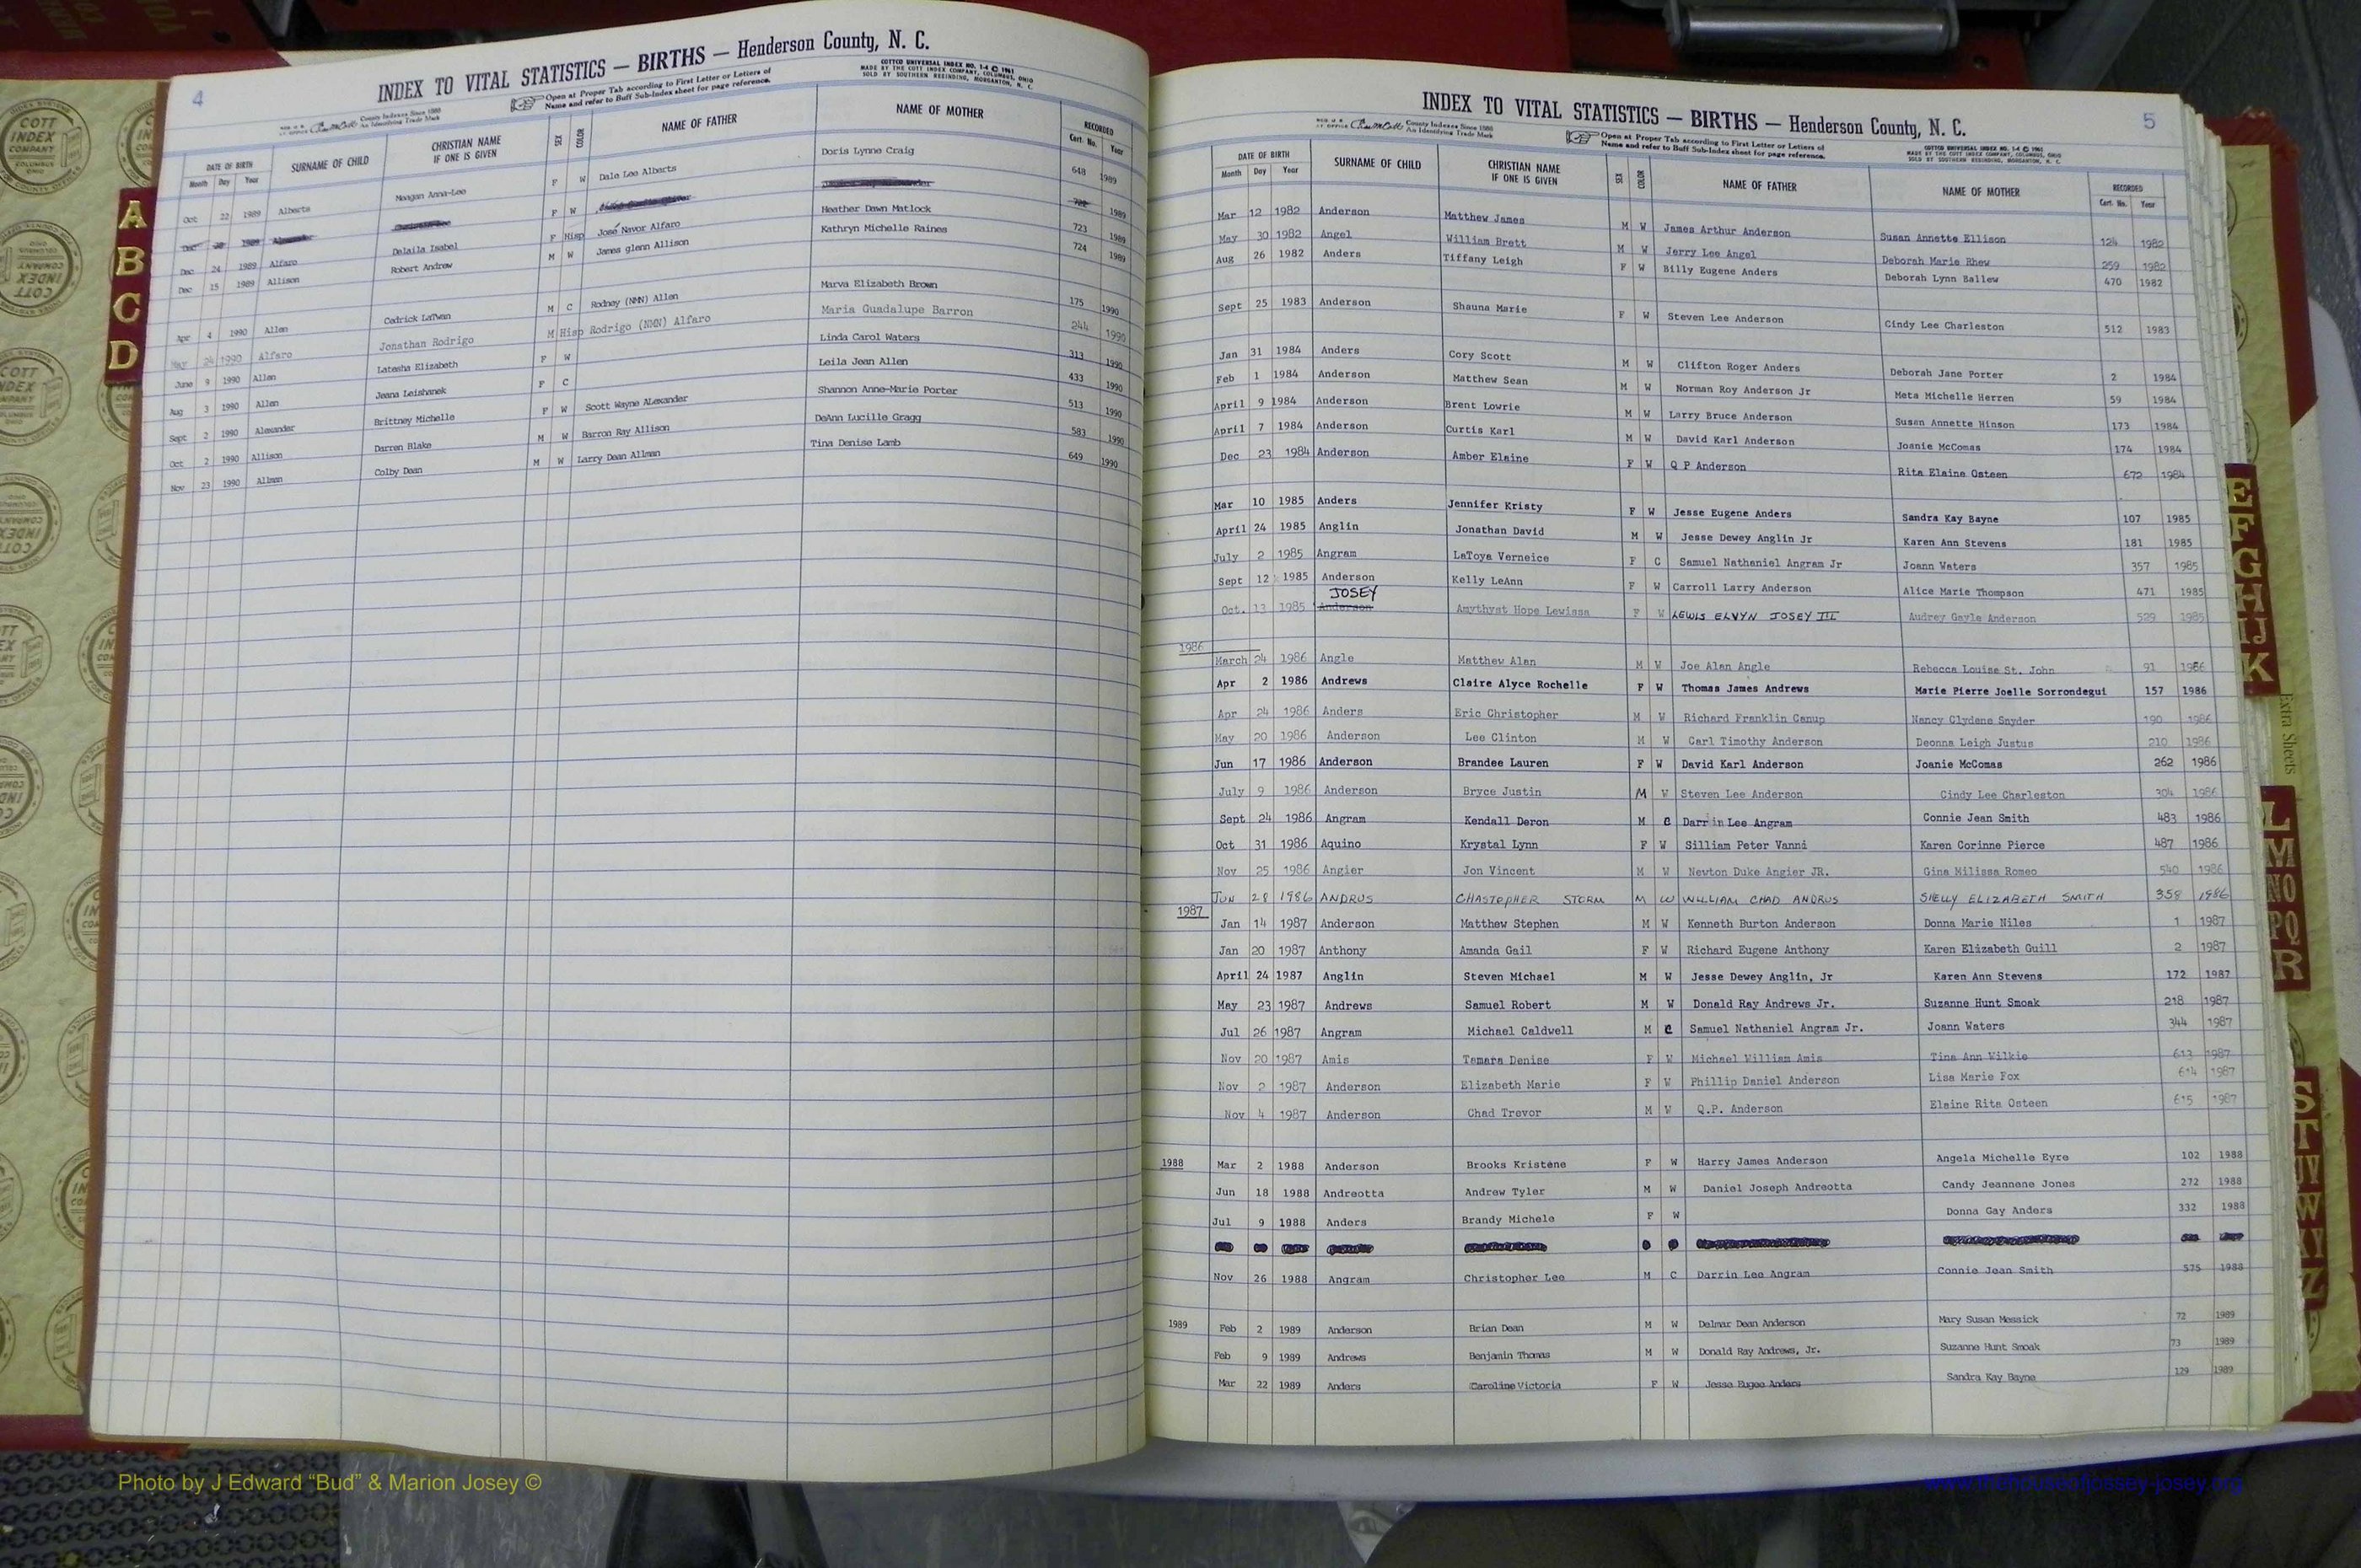 4
INDEX TO VITAL STATISTICS — BIRTHS — Henderson County, N. C.
County Indexes Since 1888
An Identifying Trade Mark
Open at Proper Tab according to First Letter or Letters of
Name and refer to Buff Sub-Index sheet for page reference.
COTTCO UNIVERSAL INDEX NO. 1-4 © 1961
MADE BY THE COTT INDEX COMPANY, COLUMBUS, OHIO
SOLD BY SOUTHERN REBINDING, MORGANTON, N. C.
DATE OF BIRTH SURNAME OF CHILD CHRISTIAN NAME IF ONE IS GIVEN SEX COLOR NAME OF FATHER NAME OF MOTHER RECORDED
Month Day Year Cert. No. Year
Oct 22 1989 Alberts Meagan Anna-Lee F W Dale Lee Alberts Doris Lynne Craig 648 1989
Dec 1989 F W 1989
Dec 24 1989 Alfaro Delaila Isabel F Hisp José Navor Alfaro Heather Dawn Matlock 723 1989
Dec 15 1989 Allison Robert Andrew M W James glenn Allison Kathryn Michelle Raines 724 1989
Apr 4 1990 Allen Cedrick LaTwan M C Rodney (NMN) Allen Marva Elizabeth Brown 175 1990
May 24 1990 Alfaro Jonathan Rodrigo M Hisp Rodrigo (NMN) Alfaro Maria Guadalupe Barron 244 1990
June 9 1990 Allen Latesha Elizabeth F W Linda Carol Waters 313 1990
Aug 3 1990 Allen Jeana Leishanek F C Leila Jean Allen 433 1990
Sept 2 1990 Alexander Brittney Michelle F W Scott Wayne ALexander Shannon Anne-Marie Porter 513 1990
Oct 2 1990 Allison Darren Blake M W Barron Ray Allison DeAnn Lucille Gragg 583 1990
Nov 23 1990 Allman Colby Dean M W Larry Dean Allman Tina Denise Lamb 649 1990
5
INDEX TO VITAL STATISTICS — BIRTHS — Henderson County, N. C.
County Indexes Since 1888
An Identifying Trade Mark
Open at Proper Tab according to First Letter or Letters of
Name and refer to Buff Sub-Index sheet for page reference.
COTTCO UNIVERSAL INDEX NO. 1-4 © 1961
MADE BY THE COTT INDEX COMPANY, COLUMBUS, OHIO
SOLD BY SOUTHERN REBINDING, MORGANTON, N. C.
DATE OF BIRTH SURNAME OF CHILD CHRISTIAN NAME IF ONE IS GIVEN SEX COLOR NAME OF FATHER NAME OF MOTHER RECORDED
Month Day Year Cert. No. Year
Mar 12 1982 Anderson Matthew James M W James Arthur Anderson Susan Annette Ellison 124 1982
May 30 1982 Angel William Brett M W Jerry Lee Angel Deborah Marie Rhew 259 1982
Aug 26 1982 Anders Tiffany Leigh F W Billy Eugene Anders Deborah Lynn Ballew 470 1982
Sept 25 1983 Anderson Shauna Marie F W Steven Lee Anderson Cindy Lee Charleston 512 1983
Jan 31 1984 Anders Cory Scott M W Clifton Roger Anders Deborah Jane Porter 2 1984
Feb 1 1984 Anderson Matthew Sean M W Norman Roy Anderson Jr Meta Michelle Herren 59 1984
April 9 1984 Anderson Brent Lowrie M W Larry Bruce Anderson Susan Annette Hinson 173 1984
April 7 1984 Anderson Curtis Karl M W David Karl Anderson Joanie McComas 174 1984
Dec 23 1984 Anderson Amber Elaine F W Q P Anderson Rita Elaine Osteen 672 1984
Mar 10 1985 Anders Jennifer Kristy F W Jesse Eugene Anders Sandra Kay Bayne 107 1985
April 24 1985 Anglin Jonathan David M W Jesse Dewey Anglin Jr Karen Ann Stevens 181 1985
July 2 1985 Angram LaToya Verneice F C Samuel Nathaniel Angram Jr Joann Waters 357 1985
Sept 12 1985 Anderson Kelly LeAnn F W Carroll Larry Anderson Alice Marie Thompson 471 1985
JOSEY
Oct. 13 1985 Anderson Amythyst Hope Lewissa F W LEWIS ELVYN JOSEY III Audrey Gayle Anderson 529 1985
1986
March 24 1986 Angle Matthew Alan M W Joe Alan Angle Rebecca Louise St. John 91 1986
Apr 2 1986 Andrews Claire Alyce Rochelle F W Thomas James Andrews Marie Pierre Joelle Sorrondegui 157 1986
Apr 24 1986 Anders Eric Christopher M W Richard Franklin Canup Nancy Clydene Snyder 190 1986
May 20 1986 Anderson Lee Clinton M W Carl Timothy Anderson Deonna Leigh Justus 210 1986
Jun 17 1986 Anderson Brandee Lauren F W David Karl Anderson Joanie McComas 262 1986
July 9 1986 Anderson Bryce Justin M W Steven Lee Anderson Cindy Lee Charleston 304 1986
Sept 24 1986 Angram Kendall Deron M C Darrin Lee Angram Connie Jean Smith 483 1986
Oct 31 1986 Aquino Krystal Lynn F W Silliam Peter Vanni Karen Corinne Pierce 487 1986
Nov 25 1986 Angier Jon Vincent M W Newton Duke Angier JR. Gina Milissa Romeo 540 1986
JUN 28 1986 ANDRUS CHASTOPHER STORM M W WILLIAM CHAD ANDRUS SHELLY ELIZABETH SMITH 358 1986
1987
Jan 14 1987 Anderson Matthew Stephen M W Kenneth Burton Anderson Donna Marie Niles 1 1987
Jan 20 1987 Anthony Amanda Gail F W Richard Eugene Anthony Karen Elizabeth Guill 2 1987
April 24 1987 Anglin Steven Michael M W Jesse Dewey Anglin, Jr Karen Ann Stevens 172 1987
May 23 1987 Andrews Samuel Robert M W Donald Ray Andrews Jr. Suzanne Hunt Smoak 218 1987
Jul 26 1987 Angram Michael Caldwell M C Samuel Nathaniel Angram Jr. Joann Waters 344 1987
Nov 20 1987 Amis Tamara Denise F W Michael William Amis Tina Ann Wilkie 613 1987
Nov 2 1987 Anderson Elizabeth Marie F W Phillip Daniel Anderson Lisa Marie Fox 614 1987
Nov 4 1987 Anderson Chad Trevor M W Q.P. Anderson Elaine Rita Osteen 615 1987
1988 Mar 2 1988 Anderson Brooks Kristene F W Harry James Anderson Angela Michelle Eyre 102 1988
Jun 18 1988 Andreotta Andrew Tyler M W Daniel Joseph Andreotta Candy Jeannene Jones 272 1988
Jul 9 1988 Anders Brandy Michele F W Donna Gay Anders 332 1988
Nov 26 1988 Angram Christopher Lee M C Darrin Lee Angram Connie Jean Smith 575 1988
1989 Feb 2 1989 Anderson Brian Dean M W Delmar Dean Anderson Mary Susan Messick 72 1989
Feb 9 1989 Andrews Benjamin Thomas M W Donald Ray Andrews, Jr. Suzanne Hunt Smoak 73 1989
Mar 22 1989 Anders Caroline Victoria F W Jesse Eugee Anders Sandra Kay Bayne 129 1989
A
B
C
D
E
F
G
H
IJ
K
Extra Sheets
L
M
NO
PQ
R
S
T
UV
W
XY
Z
COTT
INDEX
COMPANY
COLUMBUS
OHIO
Photo by J Edward “Bud” & Marion Josey ©
www.thehouseofjossey-josey.org